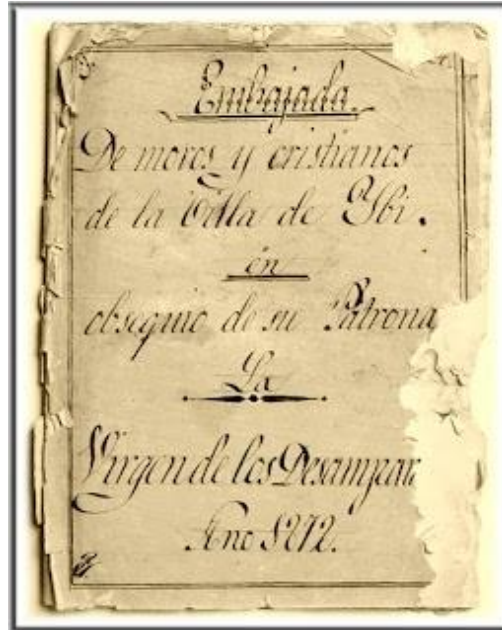 Embajada.
De moros y cristianos
de la Villa de Ybi.
en
obsequio de su Patrona
La
Virgen de los Desampar
Año